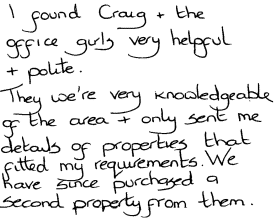 I found Craig + the
office girls very helpful
+ polite.
They we're very knowledgeable
of the area + only sent me
details of properties that
fitted my requirements. We
have since purchased a
second property from them.